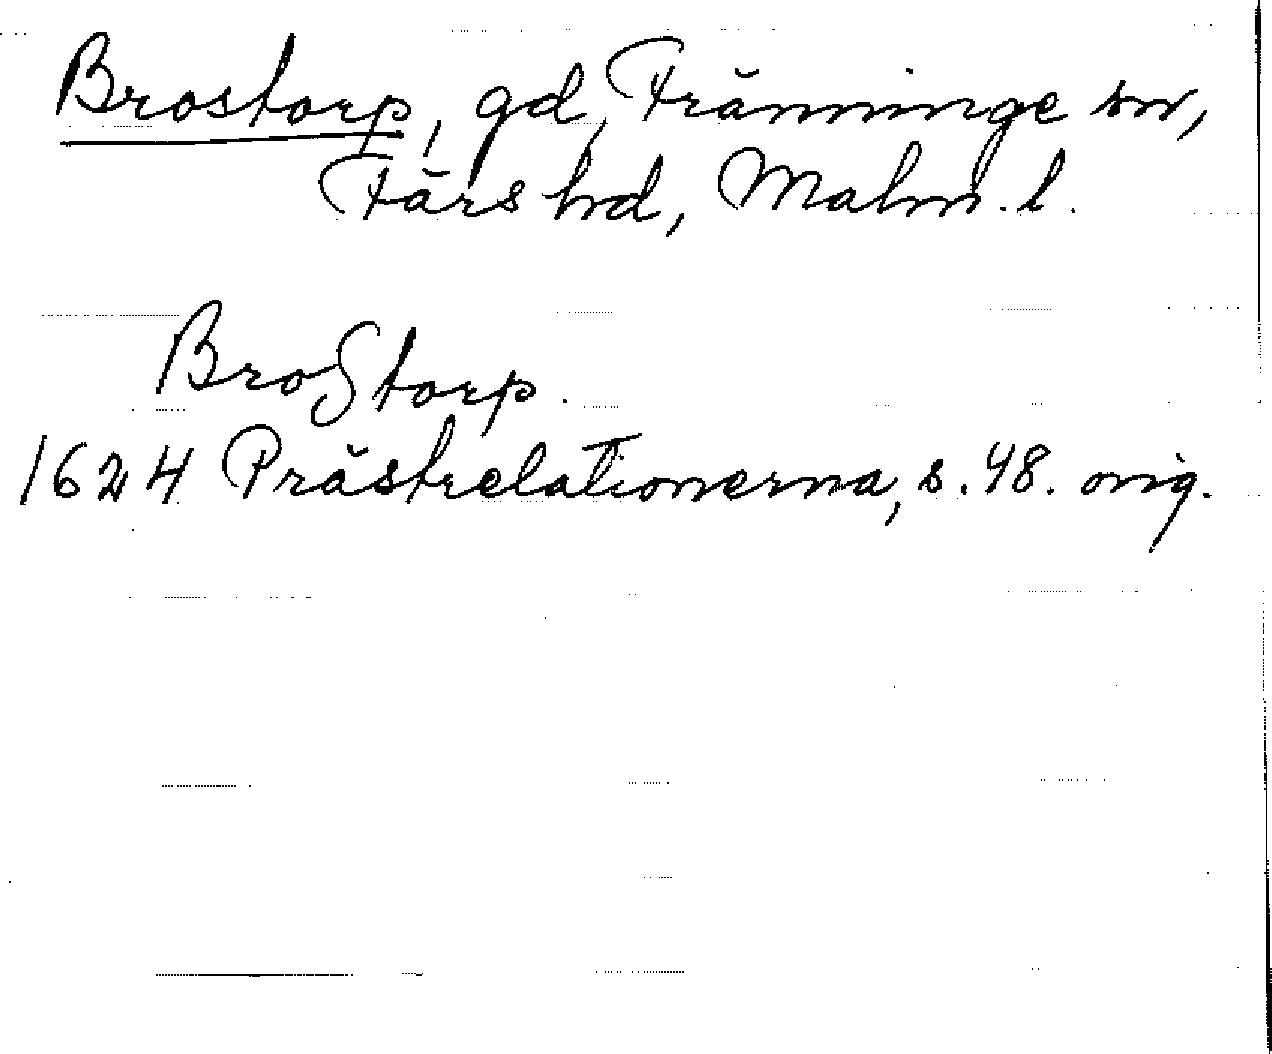 Brostorp, gd, Fränninge sn,
Färs hd, Malm. l.
BroStorp.
1624 Prästrelationerna, s. 48. orig.